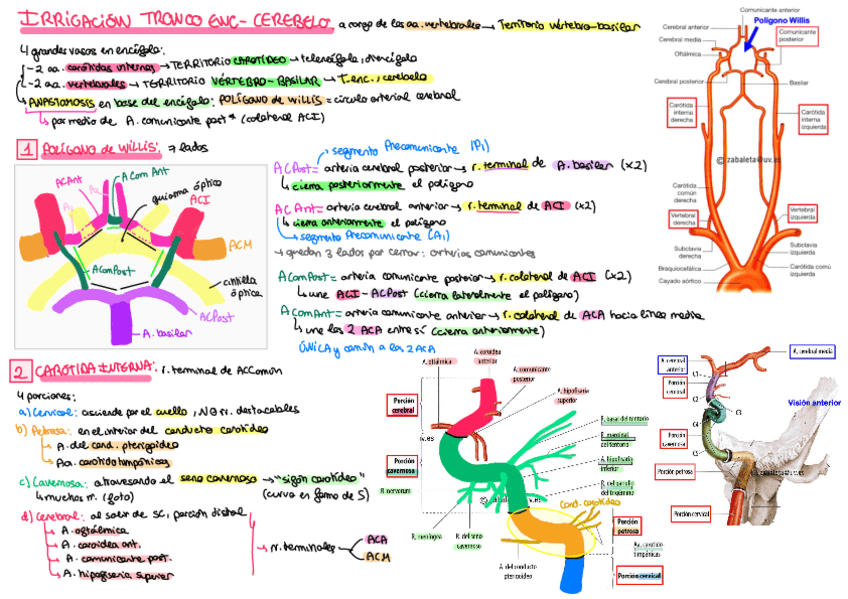 IRRIGACIÓN TRONCO ENC- CEREBELO: a cargo de las aa. vertebrales → Territorio vértebro-basilar
4 grandes vasos en encéfalo:
-2 aa. carótidas internas → TERRITORIO CAROTÍDEO → telencéfalo, diencéfalo
-2 aa. vertebrales → TERRITORIO VÉRTEBRO-BASILAR → T.enc., cerebelo
ANASTOMOSIS en base del encéfalo: POLÍGANO DE WILLIS = círculo arterial cerebral
por medio de A. comunicante post* (colateral ACI)
1 POLÍGONO de WILLIS: 7 lados
ACAnt
A Com Ant
quiasma óptico
ACI
ACM
AComPost
cintilla óptica
ACPost
A. basilar
segmento Precomunicante (P1)
ACPost = arteria cerebral posterior → r. terminal de A. basilar (x2)
cierra posteriormente el polígano
ACAnt = arteria cerebral anterior → r. terminal de ACI (x2)
cierra anteriormente el polígano
segmento Precomunicante (A1)
→ quedan 3 lados por cerrar: arterias comunicantes
AComPost = arteria comunicante posterior → r. colateral de ACI (x2)
une ACI - ACPost (cierra lateralmente el polígano)
AComAnt = arteria comunicante anterior → r. colateral de ACA hacia línea media
une las 2 ACA entre sí (cierra anteriormente)
ÚNICA y común a las 2 ACA
Comunicante anterior
Polígono Willis
Cerebral anterior
Cerebral media
Oftálmica
Comunicante posterior
Cerebral posterior
Basilar
Carótida interna derecha
Carótida interna izquierda
© zabaleta@uv.es
Carótida común derecha
Vertebral derecha
Vertebral izquierda
Subclavia derecha
Subclavia izquierda
Braquiocefálica
Carótida común izquierda
Cayado aórtico
2 CARÓTIDA INTERNA: r. terminal de ACComún
4 porciones:
a) Cervical: asciende por el cuello, NO rr. destacables
b) Petrosa: en el interior del conducto carotídeo
A. del cond. pterigoideo
Aa. carotidotimpánicas
c) Cavernosa: atravesando el seno cavernoso → "sigón carotídeo"
muchos rr. (foto)
(curva en forma de S)
d) Cerebral: al salir de SC, porción distal
A. oftálmica
A. coroidea ant.
A. comunicante post.
A. hipofisaria superior
rr. terminales
ACA
ACM
A. oftálmica
A. coroidea anterior
A. comunicante posterior
A. hipofisaria superior
Porción cerebral
Porción cavernosa
R. basal del tentorio
R. marginal del tentorio
A. hipofisaria inferior
R. del ganglio del trigémino
R. nervorum
R. meníngea
R. del seno cavernoso
Cond. carotídeo
Porción petrosa
Aa. carótico timpánicas
A. del conducto pterigoideo
Porción cervical
A. cerebral media
A. cerebral anterior
C1
Porción cerebral
C2
C3
Visión anterior
C4
Porción cavernosa
C5
Porción petrosa
Porción cervical